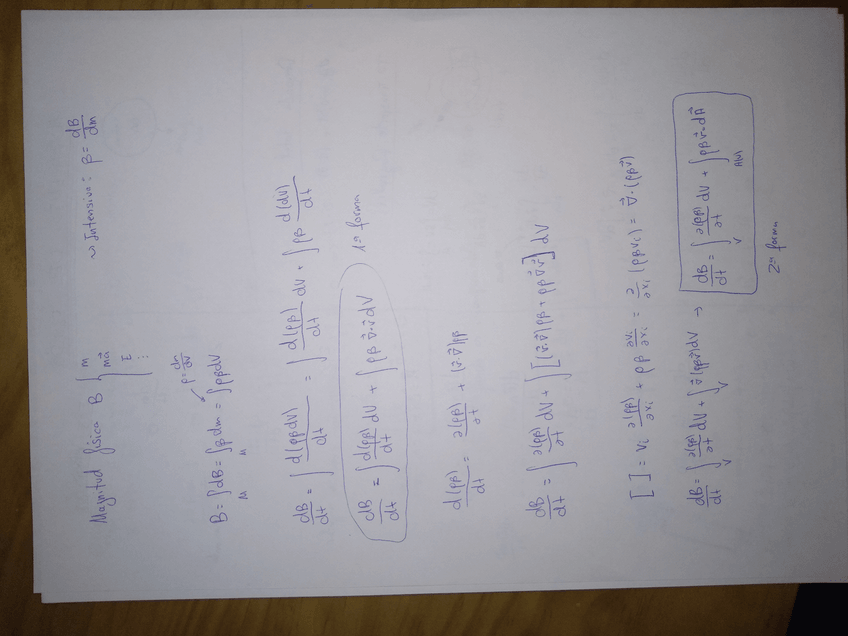 Magnitud física B { m   m\vec{a}   E   ⋮   ~> Intensiva: β = dB/dm
ρ = dm/dV
B = ∫_M dB = ∫_M β dm = ∫ ρβ dV
dB/dt = ∫ d(ρβ dV)/dt = ∫ d(ρβ)/dt dV + ∫ ρβ d(dV)/dt
dB/dt = ∫ d(ρβ)/dt dV + ∫ ρβ \vec{∇}·\vec{v} dV   1ª forma
d(ρβ)/dt = ∂(ρβ)/∂t + (\vec{v}·\vec{∇})ρβ
dB/dt = ∫ ∂(ρβ)/∂t dV + ∫ [(\vec{v}·\vec{∇})ρβ + ρβ \vec{∇}·\vec{v}] dV
[ ] = v_i ∂(ρβ)/∂x_i + ρβ ∂v_i/∂x_i = ∂/∂x_i (ρβ v_i) = \vec{∇}·(ρβ\vec{v})
dB/dt = ∫_V ∂(ρβ)/∂t dV + ∫_V \vec{∇}(ρβ\vec{v}) dV → dB/dt = ∫_V ∂(ρβ)/∂t dV + ∫_{A(V)} ρβ \vec{v}·d\vec{A}
2ª forma